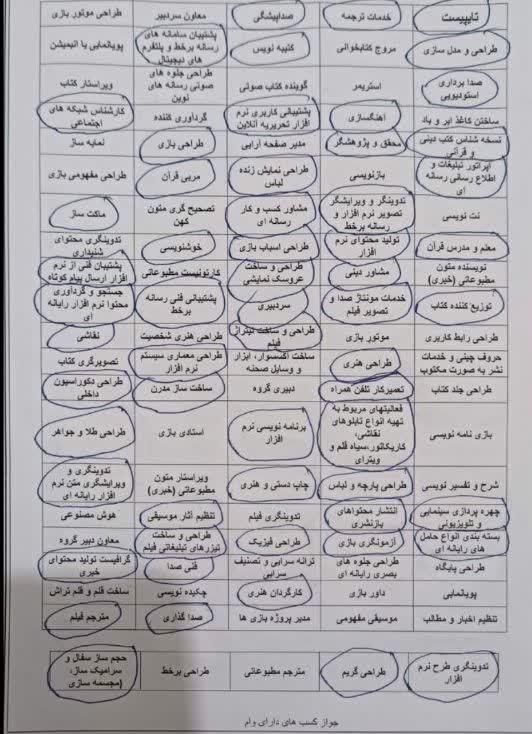 تایپیست	خدمات ترجمه	صداپیشگی	معاون سردبیر	طراحی موتور بازی
طراحی و مدل سازی	مروج کتابخوانی	کتیبه نویس	پشتیبان سامانه های رسانه برخط و پلتفرم های دیجیتال	پویانمایی یا انیمیشن
صدا برداری استودیویی	استریمر	گوینده کتاب صوتی	طراحی جلوه های صوتی رسانه های نوین	ویراستار کتاب
ساختن کاغذ ابر و باد	آهنگسازی	پشتیبانی کاربری نرم افزار تحریریه آنلاین	گردآوری کننده	کارشناس شبکه های اجتماعی
نسخه شناس کتب دینی و قرآنی	محقق و پژوهشگر	مدیر صفحه آرایی	طراحی بازی	لمایه ساز
اپراتور تبلیغات و اطلاع رسانی رسانه ای	بازنویسی	طراحی نمایش زنده لباس	مربی قرآن	طراحی مفهومی بازی
نت نویسی	تدوینگر و ویرایشگر تصویر نرم افزار و رسانه برخط	مشاور کسب و کار رسانه ای	تصحیح گری متون کهن	ماکت ساز
معلم و مدرس قرآن	تولید محتوای نرم افزار	طراحی اسباب بازی	خوشنویسی	تدوینگری محتوای شنیداری
نویسنده متون مطبوعاتی (خبری)	مشاور دینی	طراحی و ساخت عروسک نمایشی	کارتونیست مطبوعاتی	پشتیبان فنی از نرم افزار ارسال پیام کوتاه
توزیع کننده کتاب	خدمات مونتاژ صدا و تصویر فیلم	سردبیری	پشتیبانی فنی رسانه برخط	جستجو و گردآوری محتوا نرم افزار رایانه ای
طراحی رابط کاربری	موتور بازی	طراحی و ساخت تیتراژ فیلم	طراحی هنری شخصیت	نقاشی
حروف چینی و خدمات نشر به صورت مکتوب	طراحی هنری	ساخت اکسسوار، ابزار و وسایل صحنه	طراحی معماری سیستم نرم افزار	تصویرگری کتاب
طراحی جلد کتاب	تعمیرکار تلفن همراه	دبیری گروه	ساخت ساز مدرن	طراحی دکوراسیون داخلی
بازی نامه نویسی	فعالیتهای مربوط به تهیه انواع تابلوهای نقاشی، کاریکاتور،سیاه قلم و ویترای	برنامه نویسی نرم افزار	استادی بازی	طراحی طلا و جواهر
شرح و تفسیر نویسی	طراحی پارچه و لباس	چاپ دستی و هنری	ویراستار متون مطبوعاتی (خبری)	تدوینگری و ویرایشگری متن نرم افزار رایانه ای
چهره پردازی سینمایی و تلویزیونی	انتشار محتواهای بازنشری	تدوینگری فیلم	تنظیم آثار موسیقی	هوش مصنوعی
بسته بندی انواع حامل های رایانه ای	آزمونگری بازی	طراحی فیزیک	طراحی و ساخت تیزرهای تبلیغاتی فیلم	معاون دبیر گروه
طراحی پایگاه	طراحی جلوه های بصری رایانه ای	ترانه سرایی و تصنیف سرایی	فنی صدا	گرافیست تولید محتوای خبری
پویانمایی	داور بازی	کارگردان هنری	چکیده نویسی	ساخت قلم و قلم تراش
تنظیم اخبار و مطالب	موسیقی مفهومی	مدیر پروژه بازی ها	صدا گذاری	مترجم فیلم
تدوینگری طرح نرم افزار	طراحی گریم	مترجم مطبوعاتی	طراحی برخط	حجم ساز سفال و سرامیک ساز، (مجسمه سازی
جواز کسب های دارای وام